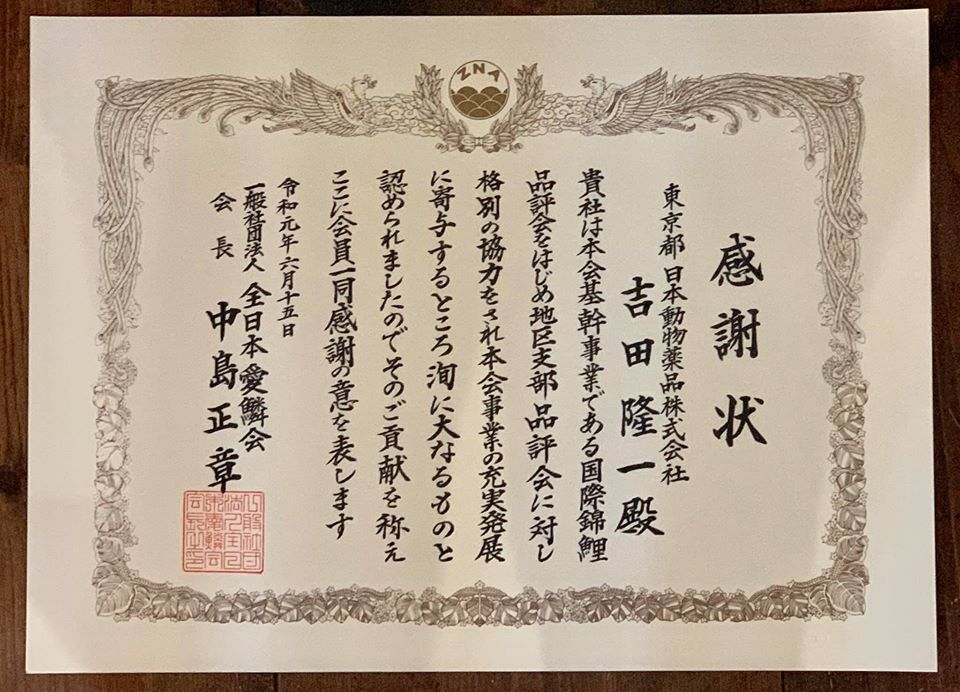 ZNA
感謝状
東京都 日本動物薬品株式会社
吉田隆一殿
貴社は本会基幹事業である国際錦鯉
品評会をはじめ地区支部品評会に対し
格別の協力をされ本会事業の充実発展
に寄与するところ洵に大なるものと
認められましたのでそのご貢献を称え
ここに会員一同感謝の意を表します
令和元年六月十五日
一般社団法人 全日本愛鱗会
会長 中島正章